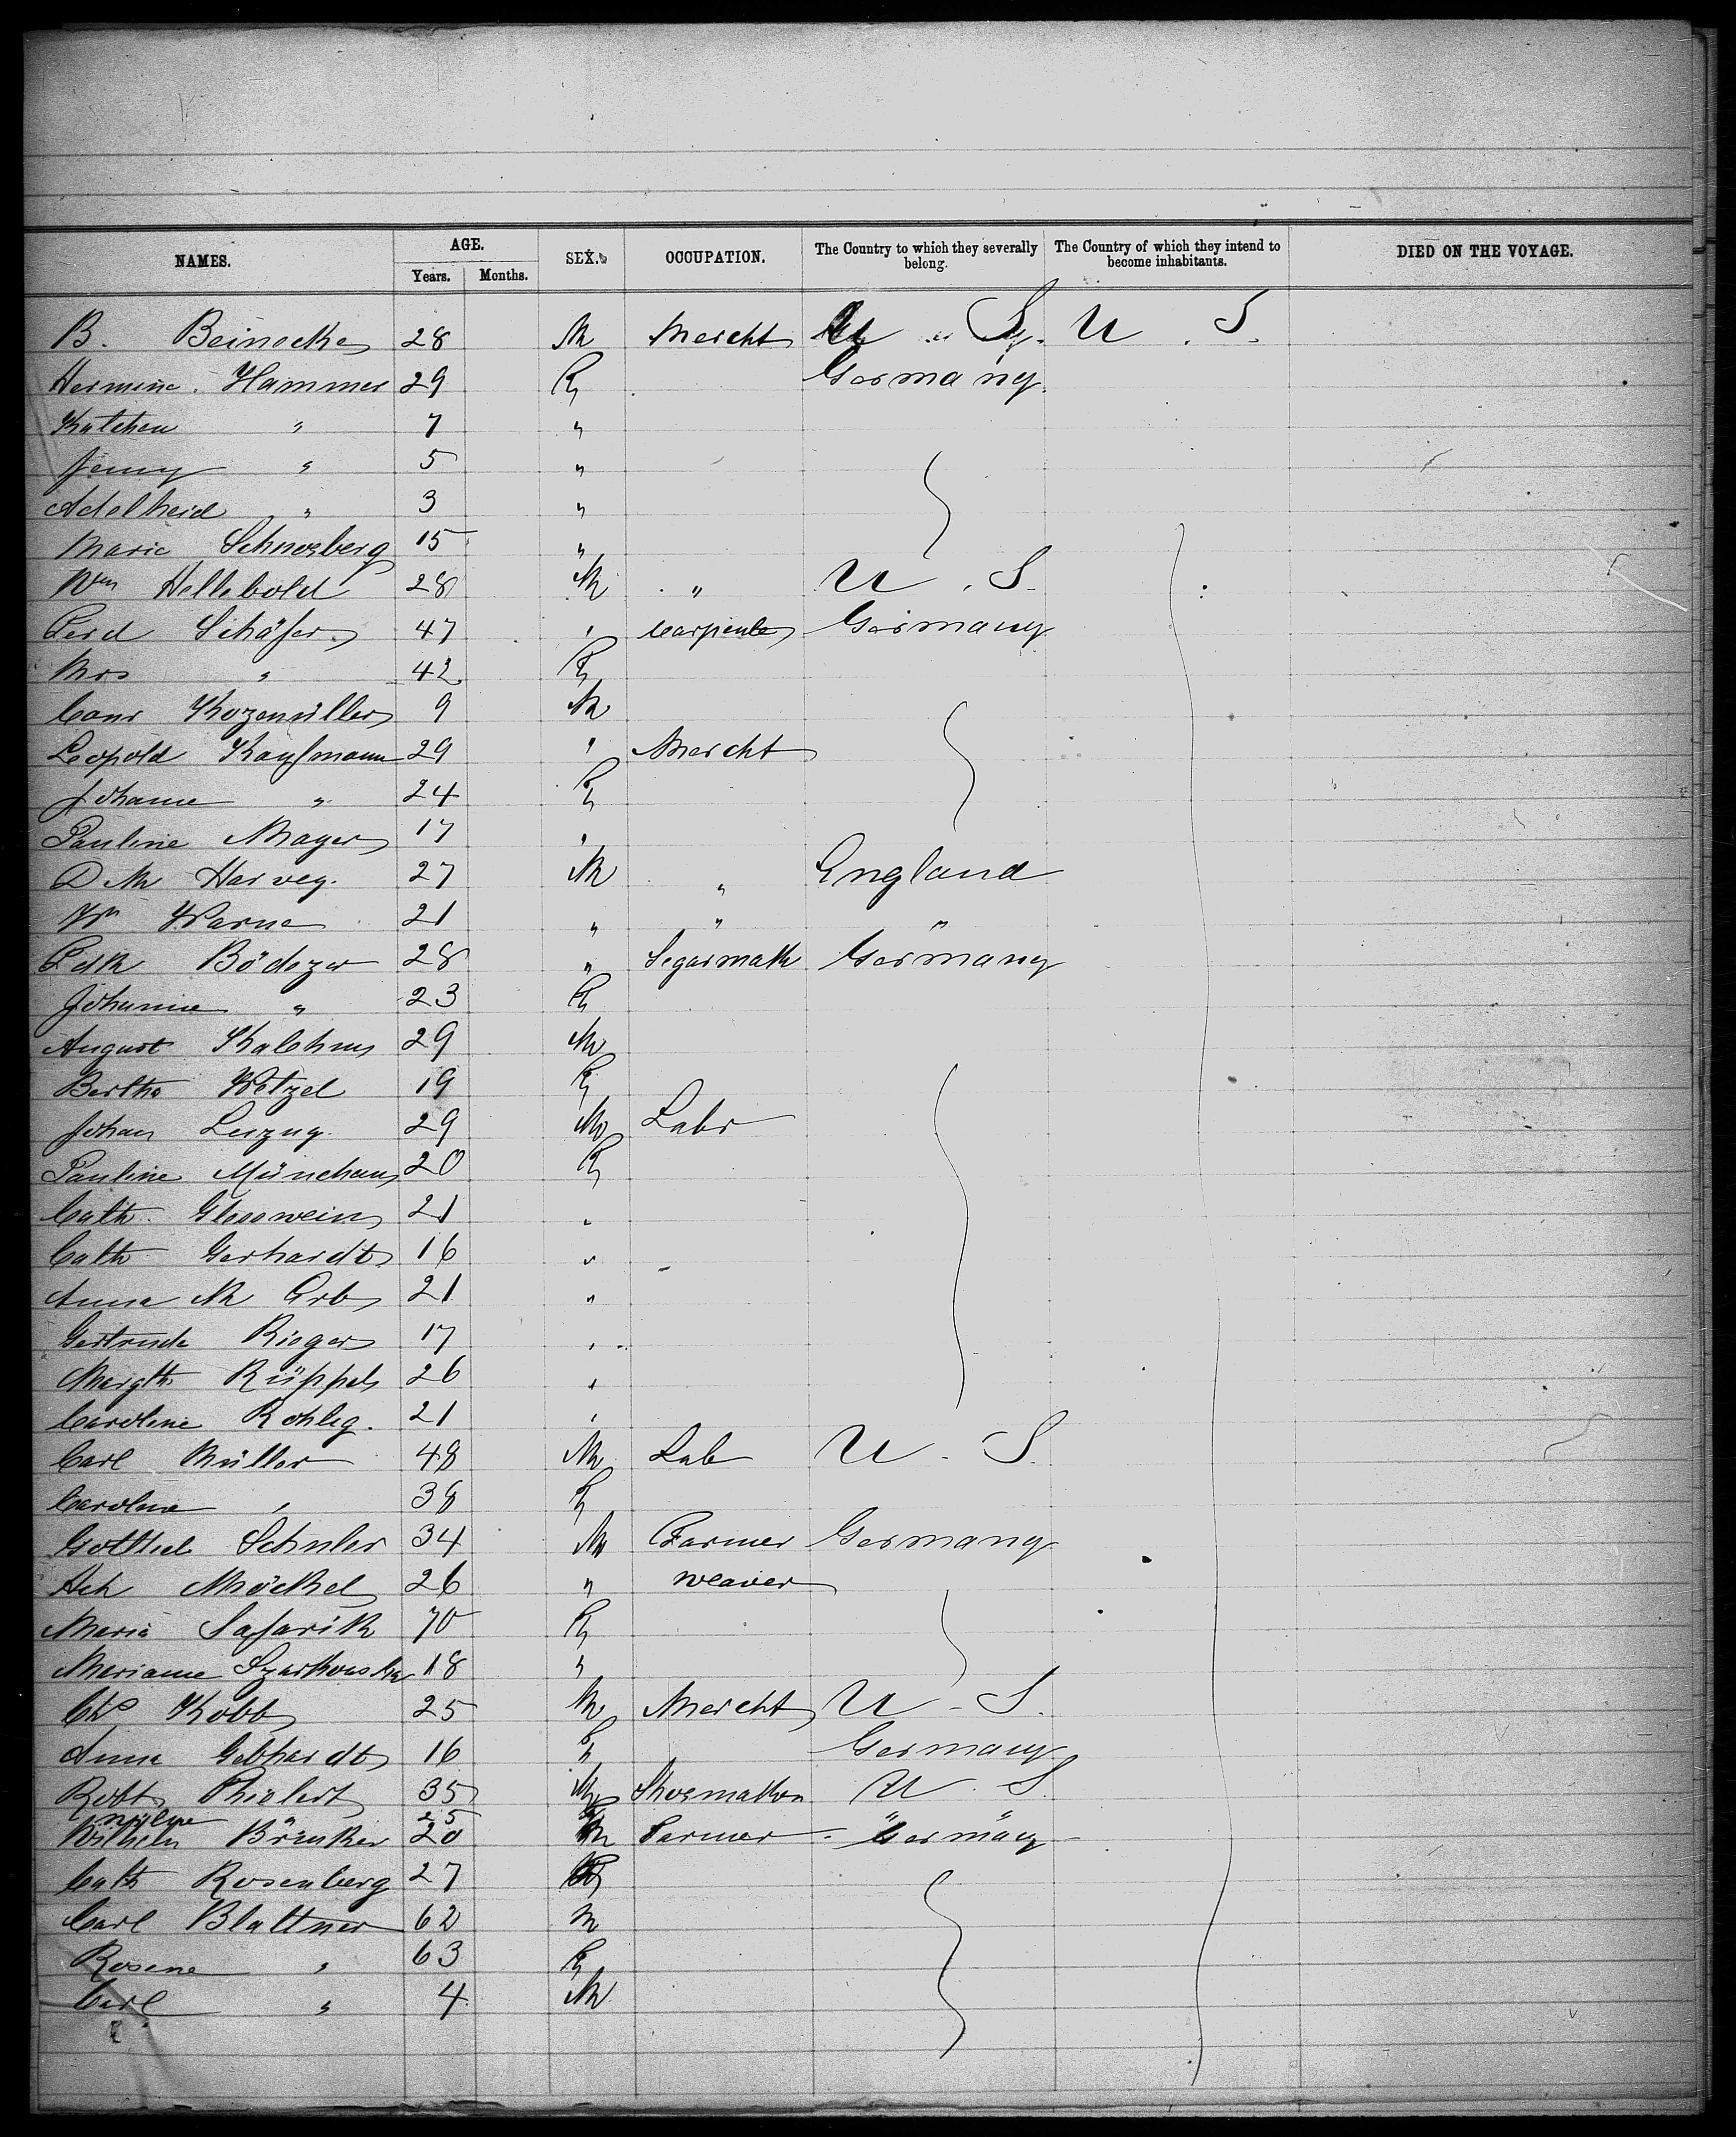 NAMES. AGE. SEX. OCCUPATION. The Country to which they severally belong. The Country of which they intend to become inhabitants. DIED ON THE VOYAGE.
Years. Months.
B. Beinecke 28 M Mercht U. S. U. S.
Hermine Hammer 29 F Germany
Katchen " 7 "
Jenny " 5 "
Adelheid " 3 "
Marie Schneeberg 15 "
Wm Hellebold 28 M " U. S.
Ferd Schäfer 47 " Carpenter Germany
Mrs " 42 F
Conr Kozenüller 9 M
Leopold Kaufmann 29 " Mercht
Johanne " 24 F
Pauline Mayer 17 "
D M Harvey. 27 M " England
Wm Warne 21 " " "
Fdk Bödezer 28 " Segarmak Germany
Johanne " 23 F
August Kalthus 29 M
Bertha Wetzel 19 F
Johan Lerzug 29 M Labr
Pauline München 20 F
Cath. Glesswein 21 "
Cath Gerhardt 16 "
Anna M Orb 21 "
Gertrude Rieger 17 "
Margth Rüppel 26 "
Caroline Rohlig. 21 "
Carl Müller 48 M Lab U. S.
Caroline " 38 F
Gottlieb Schuler 34 M Farmer Germany
Ach Möckel 26 " weaver
Maria Safarik 70 F
Marianne Szarkowska 18 "
Chs Kobb 25 M Mercht U. S.
Anna Gebhardt 16 F Germany
Robt Thielert 35 M Shoemaker U. S.
" 25 F " "
Wilhelm Brinker 20 M Farmer Germany
Cath Rosenberg 27 F
Carl Blattner 62 M
Rosene " 63 F
Carl " 4 M